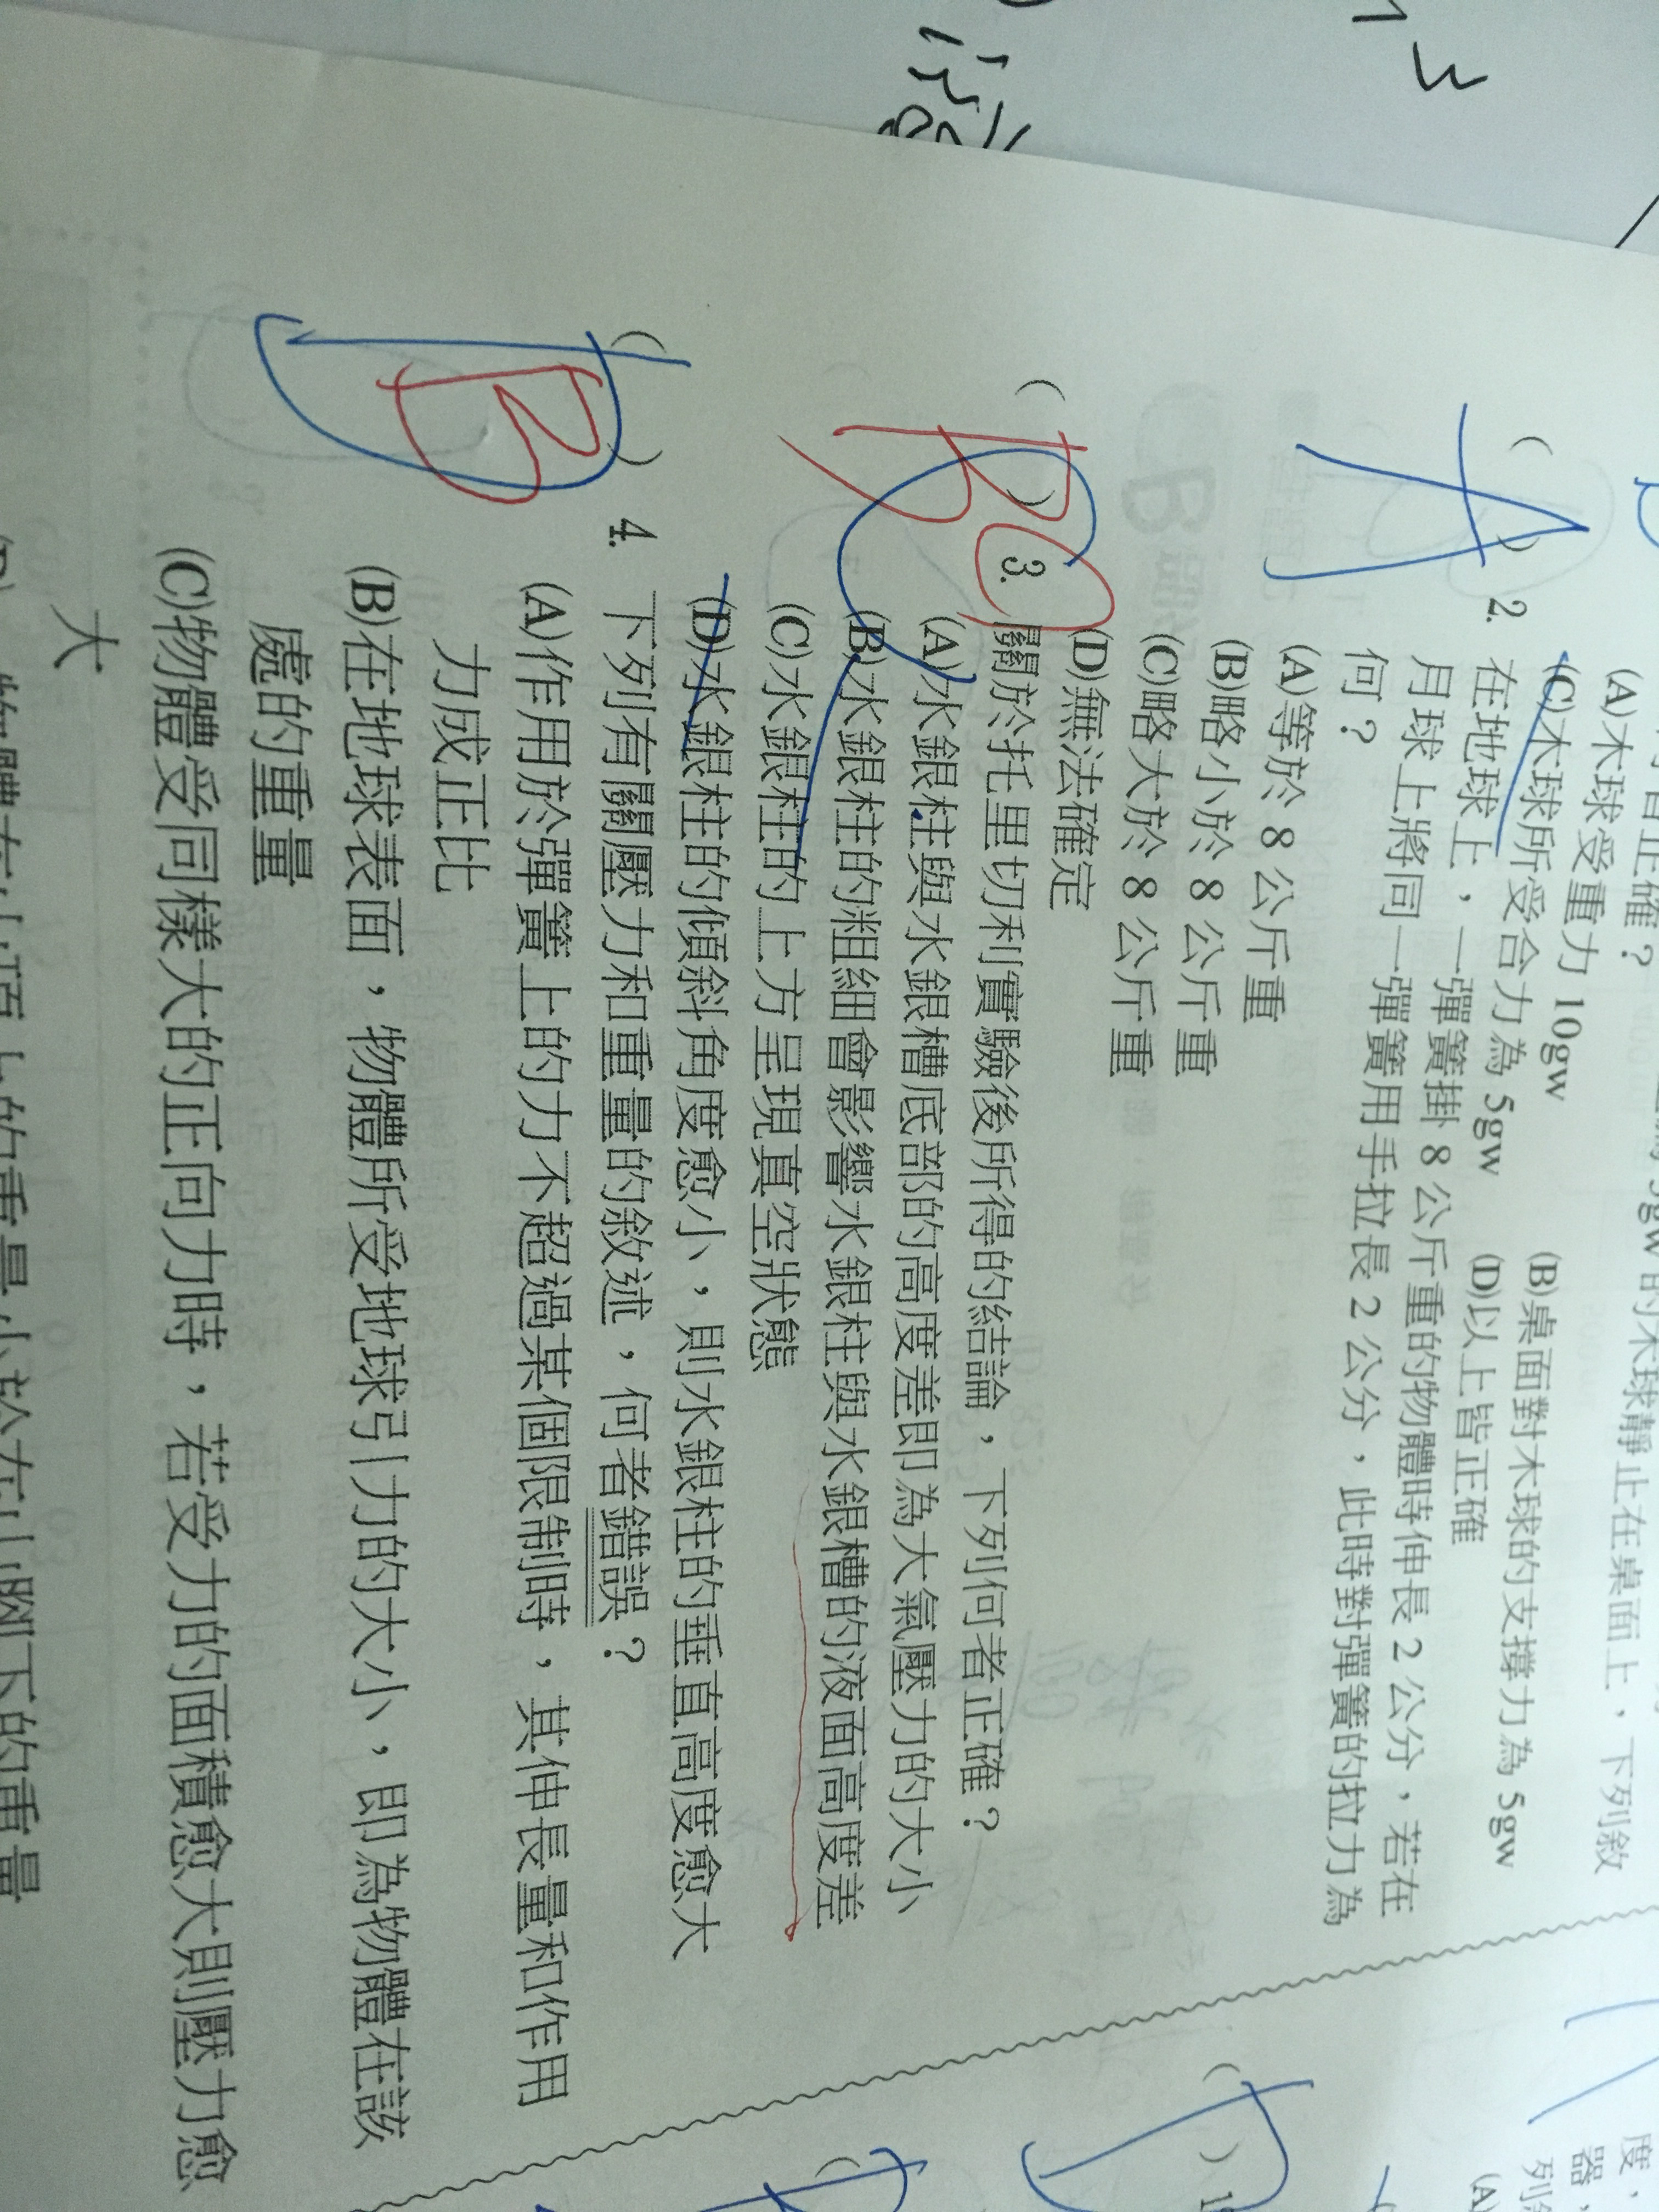 (A)木球受重力 10gw
(B)桌面對木球的支撐力為 5gw
(C)木球所受合力為 5gw
(D)以上皆正確
2. 在地球上，一彈簧掛 8 公斤重的物體時伸長 2 公分，若在
月球上將同一彈簧用手拉長 2 公分，此時對彈簧的拉力為
何？
(A)等於 8 公斤重
(B)略小於 8 公斤重
(C)略大於 8 公斤重
(D)無法確定
3. 關於托里切利實驗後所得的結論，下列何者正確？
(A)水銀柱與水銀槽底部的高度差即為大氣壓力的大小
(B)水銀柱的粗細會影響水銀柱與水銀槽的液面高度差
(C)水銀柱的上方呈現真空狀態
(D)水銀柱的傾斜角度愈小，則水銀柱的垂直高度愈大
4. 下列有關壓力和重量的敘述，何者錯誤？
(A)作用於彈簧上的力不超過某個限制時，其伸長量和作用
力成正比
(B)在地球表面，物體所受地球引力的大小，即為物體在該
處的重量
(C)物體受同樣大的正向力時，若受力的面積愈大則壓力愈
大
物體在山頂上的重量小於在山腳下的重量